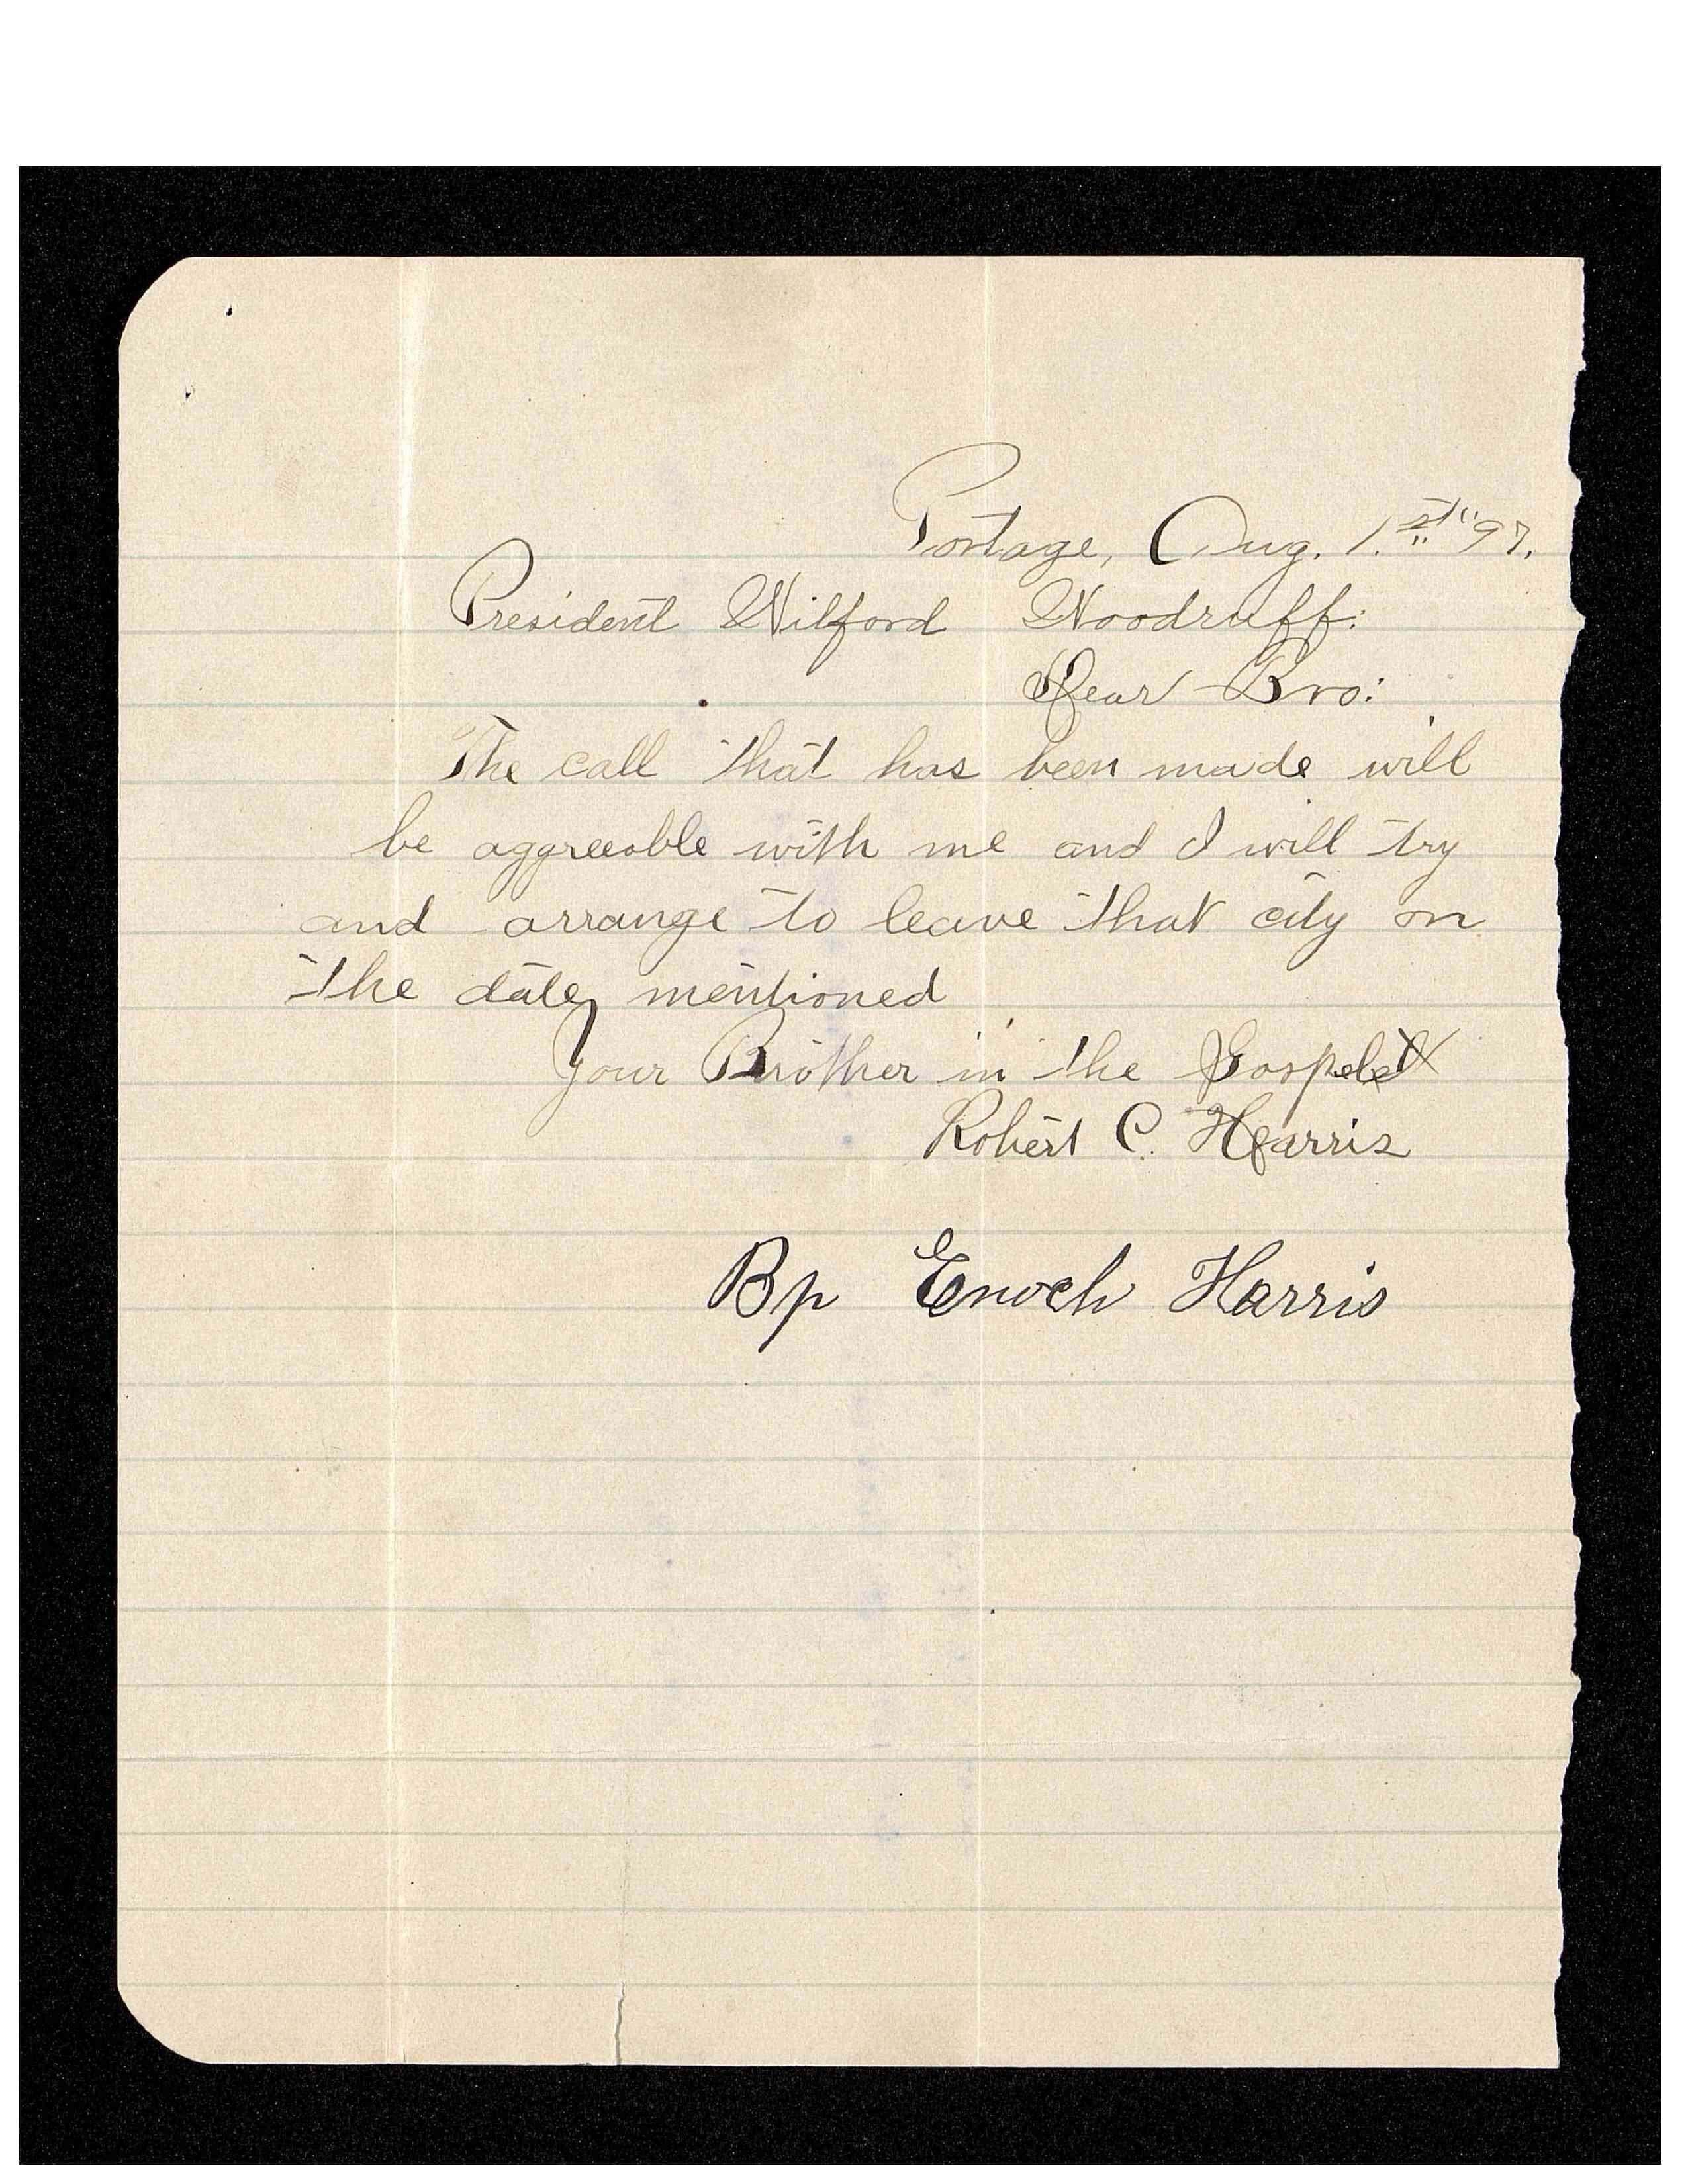 Portage, Aug. 1.st "97.
President Wilford Woodruff:
Dear Bro:
The call that has been made will
be aggreeable with me and I will try
and arrange to leave that city on
the date mentioned
Your Brother in the Gospel
Robert C. Harris
Bp Enoch Harris